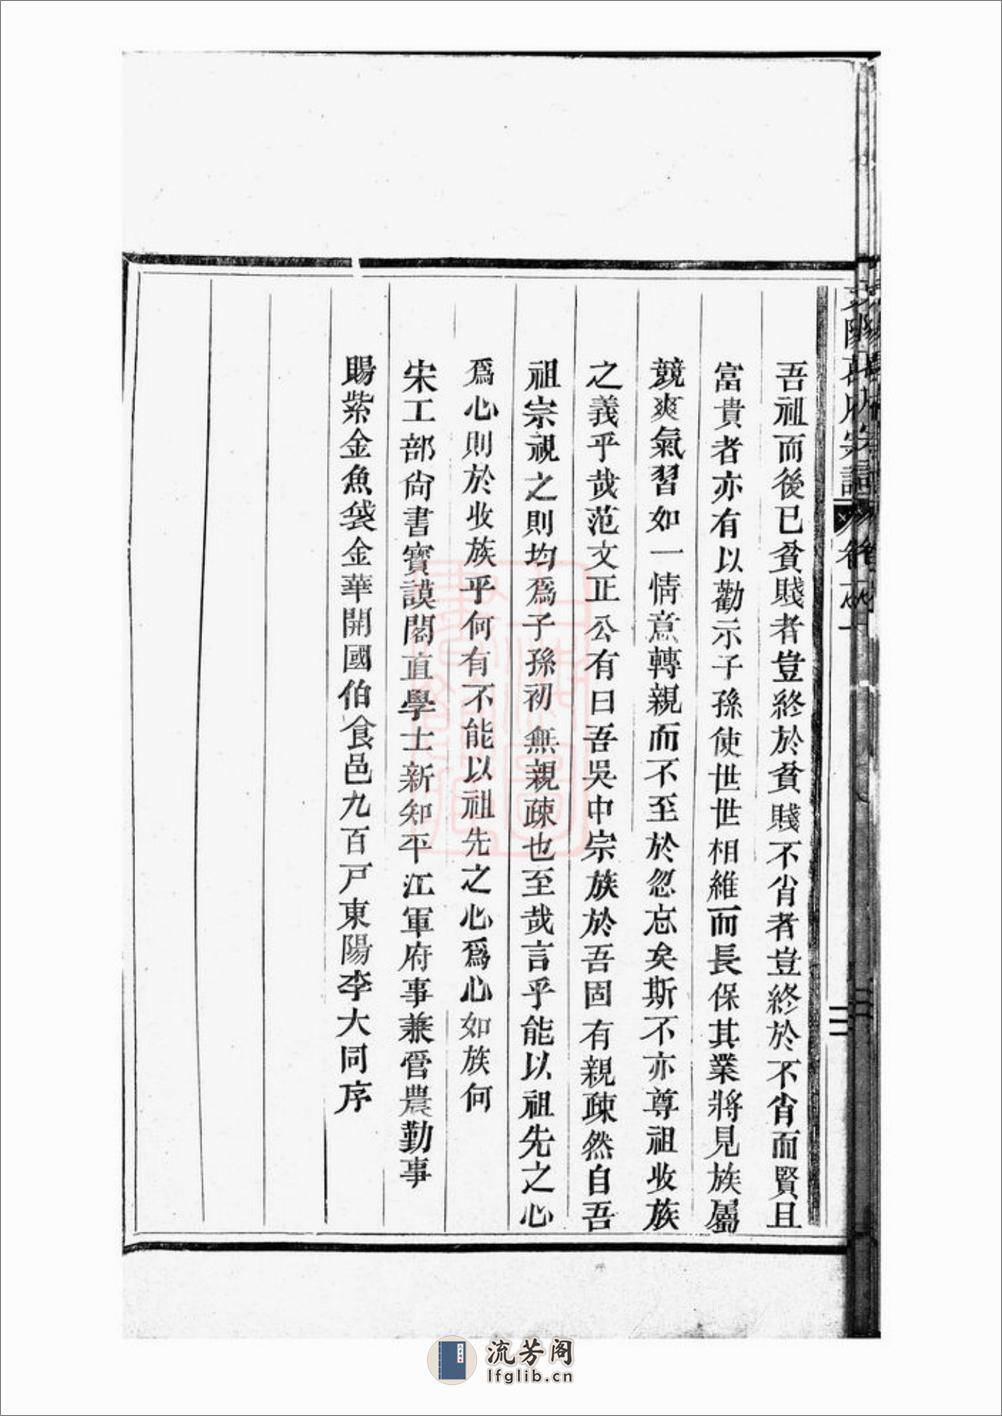 吾祖而後已貧賤者豈終於貧賤不肖者豈終於不肖而賢且
富貴者亦有以勸示子孫使世世相維而長保其業將見族屬
競爽氣習如一情意轉親而不至於忽忘矣斯不亦尊祖收族
之義乎哉范文正公有曰吾吳中宗族於吾固有親疎然自吾
祖宗視之則均爲子孫初無親疎也至哉言乎能以祖先之心
爲心則於收族乎何有不能以祖先之心爲心如族何
宋工部尚書寳謨閣直學士新知平江軍府事兼管農勤事
賜紫金魚袋金華開國伯食邑九百戸東陽李大同序
流芳阁
lfglib.cn